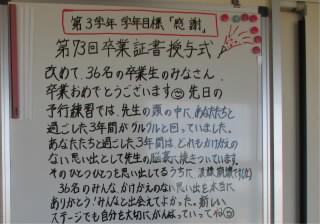 第3学年 学年目標「感謝」
第73回卒業証書授与式
改めて、36名の卒業生のみなさん、
卒業おめでとうございます 先日の
予行練習では、先生の頭の中に、あなたたちと
過ごした3年間がクルクルと回っていました。
あなたたちと過ごした3年間は、どれもかけがえの
ない思い出として先生の脳裏に焼きついています。
そのひとつひとつを思い出してるうちに、涙腺崩壊です(笑)
36名のみんな、かけがえのない思い出を本当に
ありがとう!みんなと出会えてよかった。新しい
ステージでも自分を大切にがんばっていってね